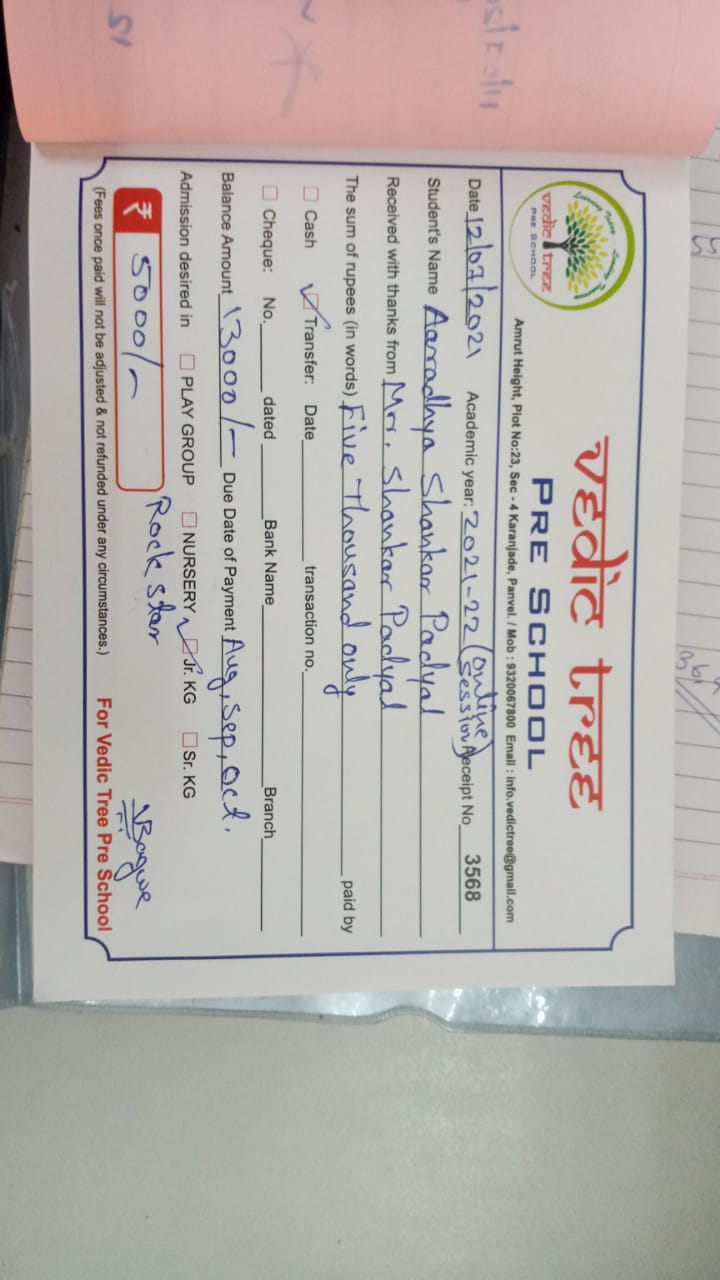 Learning Values - Living Dreams
vedic tree
PRE SCHOOL
vedic tree
PRE SCHOOL
Amrut Height, Plot No:23, Sec - 4 Karanjade, Panvel. / Mob : 9320067800 Email : info.vedictree@gmail.com
Date 12/07/2021 Academic year: 2021-22 (online session) Receipt No 3568
Student's Name Aaradhya Shankar Padyal
Received with thanks from Mr. Shankar Padyal
The sum of rupees (in words) Five Thousand only paid by
Cash Transfer: Date transaction no.
Cheque: No. dated Bank Name Branch
Balance Amount 13000/- Due Date of Payment Aug, Sep, Oct.
Admission desired in PLAY GROUP NURSERY Jr. KG Sr. KG
₹ 5000/- Rock star
(Fees once paid will not be adjusted & not refunded under any circumstances.) For Vedic Tree Pre School